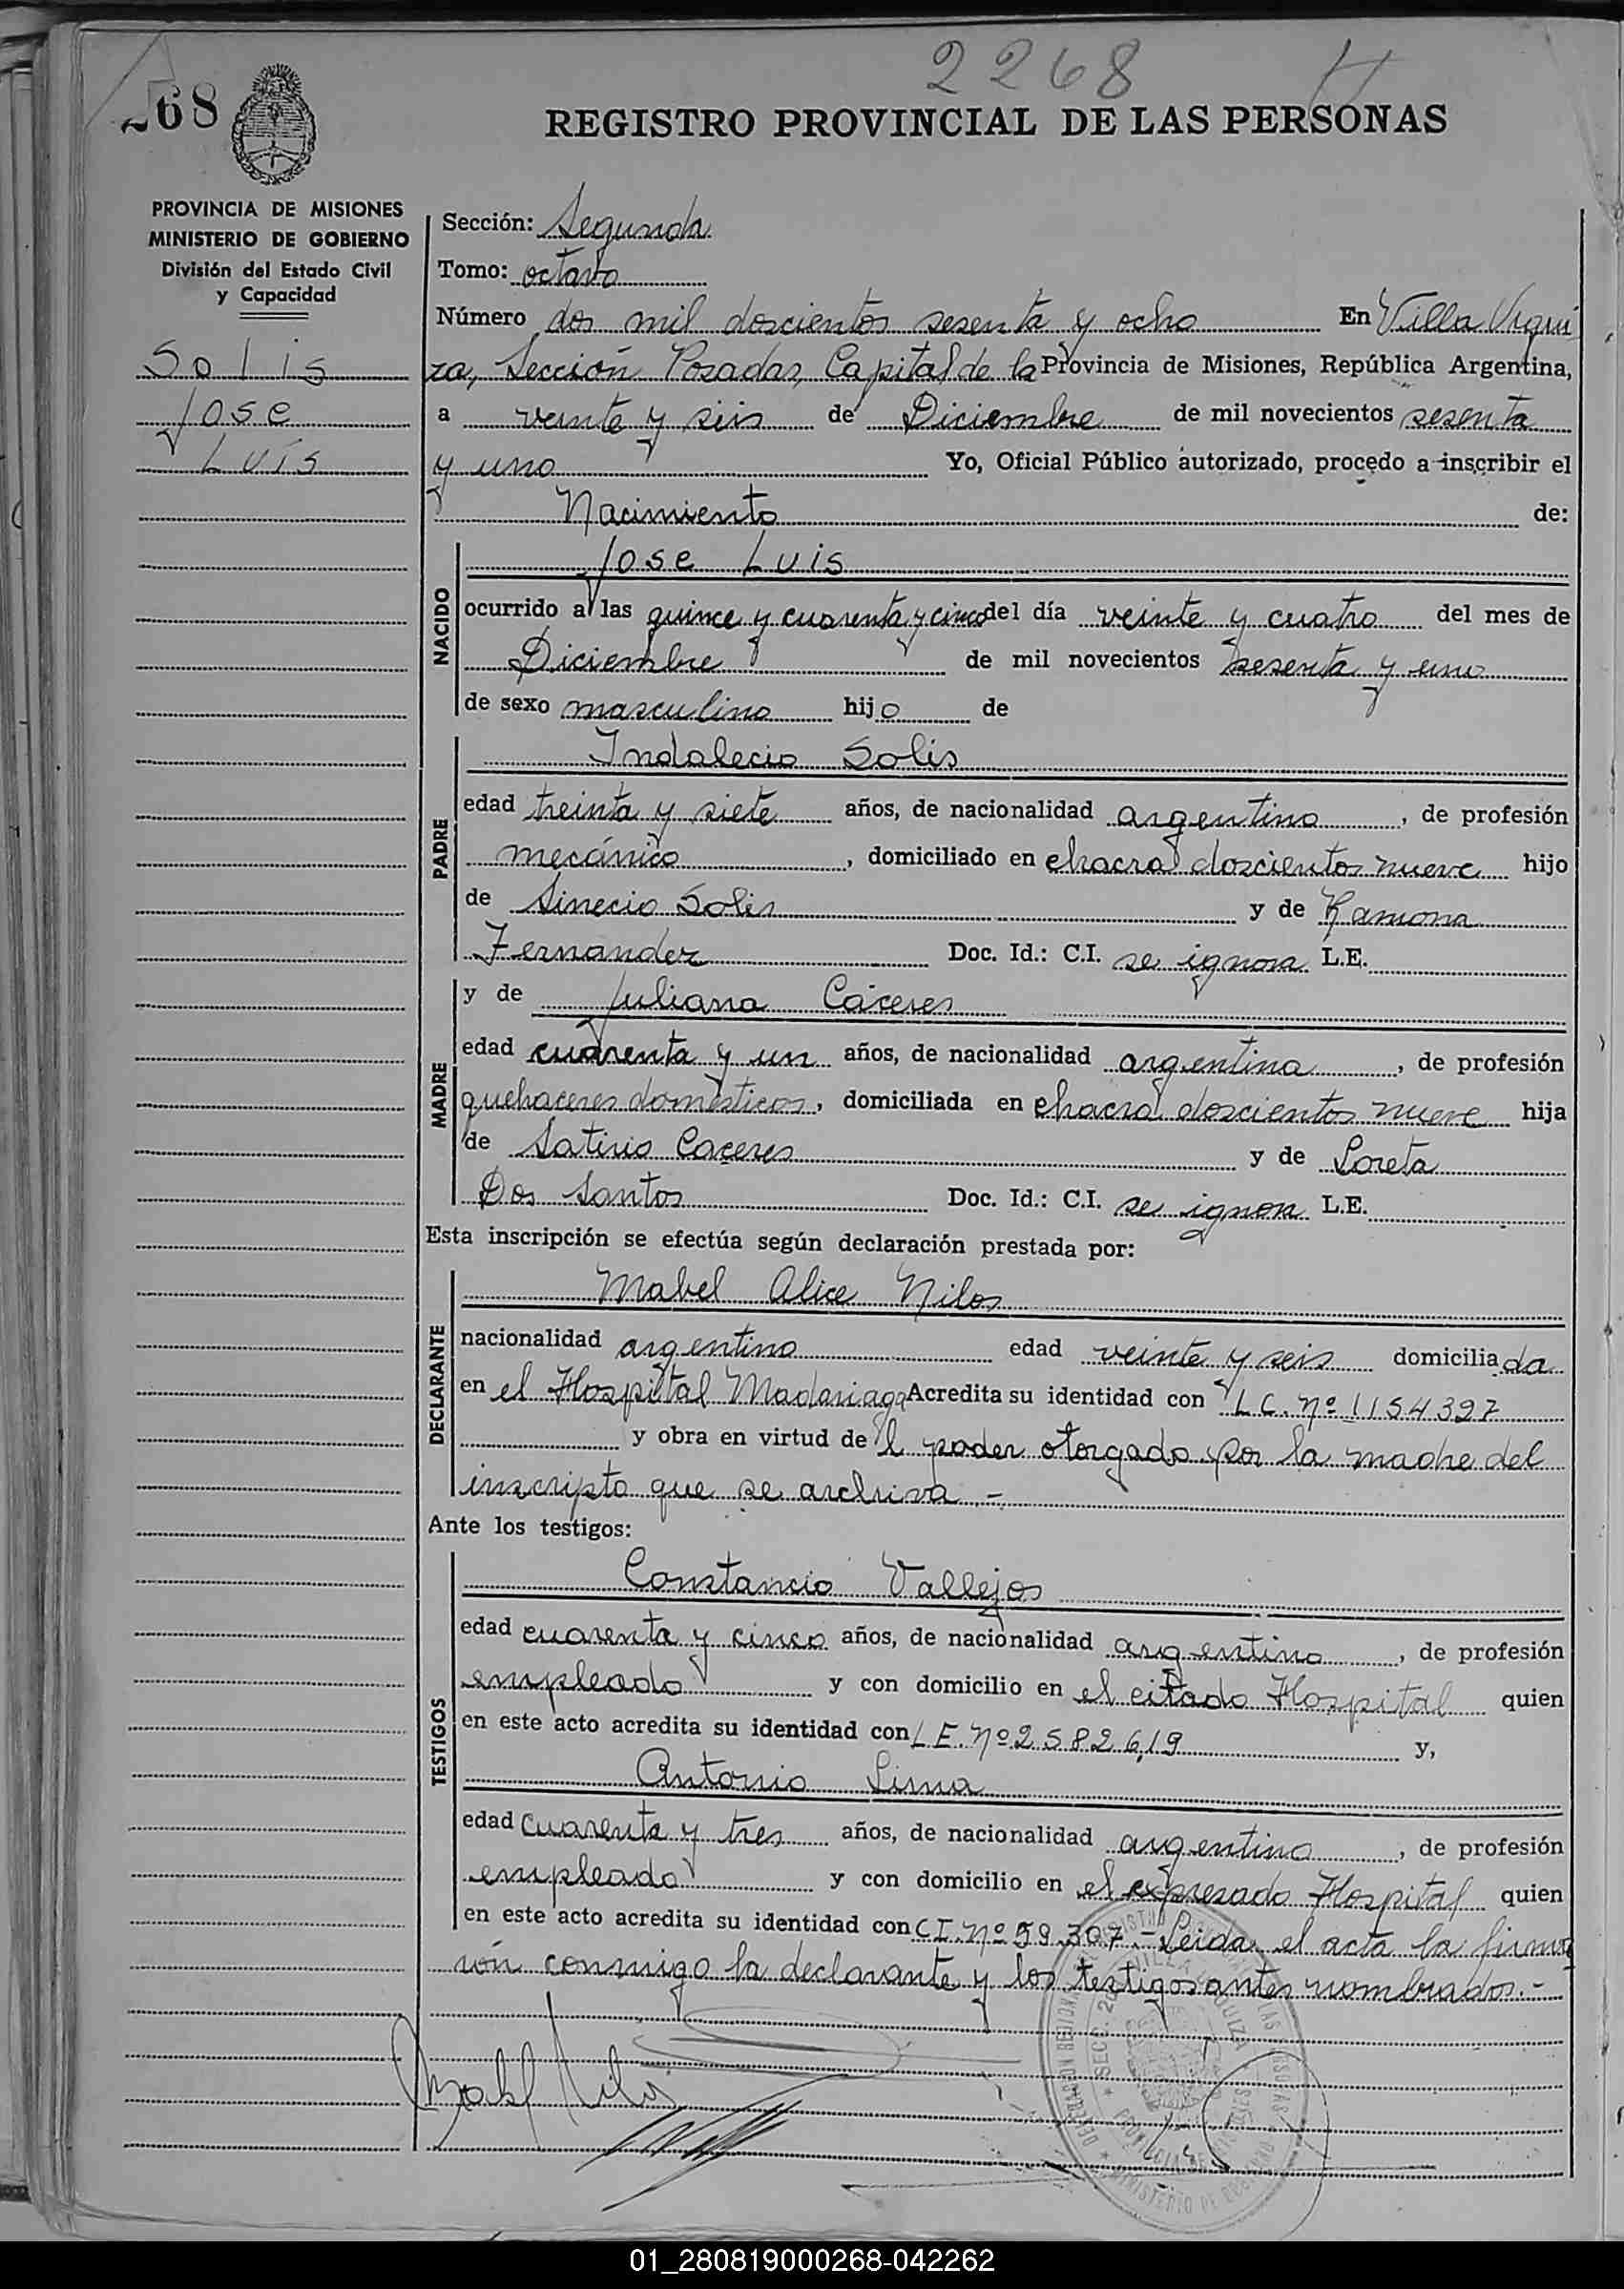 2268
268
REGISTRO PROVINCIAL DE LAS PERSONAS
PROVINCIA DE MISIONES
MINISTERIO DE GOBIERNO
División del Estado Civil
y Capacidad
Solis
Jose
Luis
Sección: Segunda
Tomo: octavo
Número dos mil doscientos sesenta y ocho En Villa Urqui
za, Sección Posadas, Capital de la Provincia de Misiones, República Argentina,
a veinte y seis de Diciembre de mil novecientos sesenta
y uno Yo, Oficial Público autorizado, procedo a inscribir el
Nacimiento de:
NACIDO
Jose Luis
ocurrido a las quince y cuarenta y cinco del día veinte y cuatro del mes de
Diciembre de mil novecientos sesenta y uno
de sexo masculino hijo de
PADRE
Indalecio Solis
edad treinta y siete años, de nacionalidad argentino, de profesión
mecánico, domiciliado en chacra doscientos nueve hijo
de Sinecio Solis y de Ramona
Fernandez Doc. Id.: C.I. se ignora L.E.
MADRE
y de Juliana Cáceres
edad cuarenta y un años, de nacionalidad argentina, de profesión
quehaceres domésticos, domiciliada en chacra doscientos nueve hija
de Satirio Caceres y de Loreta
Dos Santos Doc. Id.: C.I. se ignora L.E.
Esta inscripción se efectúa según declaración prestada por:
DECLARANTE
Mabel Alice Nilos
nacionalidad argentina edad veinte y seis domiciliada
en el Hospital Madariaga Acredita su identidad con L.C. Nº 1154397
y obra en virtud del poder otorgado por la madre del
inscripto que se archiva.-
Ante los testigos:
TESTIGOS
Constancio Vallejos
edad cuarenta y cinco años, de nacionalidad argentino, de profesión
empleado y con domicilio en el citado Hospital quien
en este acto acredita su identidad con L.E. Nº 2582619 y,
Antonio Lima
edad cuarenta y tres años, de nacionalidad argentino, de profesión
empleado y con domicilio en el expresado Hospital quien
en este acto acredita su identidad con C.I. Nº 59.307.- Leida el acta la firma
ron conmigo la declarante y los testigos antes nombrados.-
Mabel Nilos
01_280819000268-042262